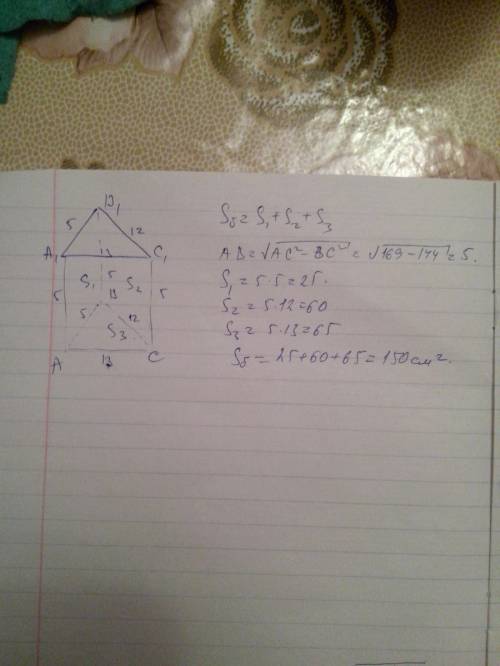 B₁
5 12
A₁ 13 C₁
S₁ 5 S₂
5 B 5
5 12
S₃
A 13 C
Sб = S₁ + S₂ + S₃
AB = √AC² - BC² = √169 - 144 = 5.
S₁ = 5·5 = 25.
S₂ = 5·12 = 60
S₃ = 5·13 = 65
Sб = 25 + 60 + 65 = 150 см².